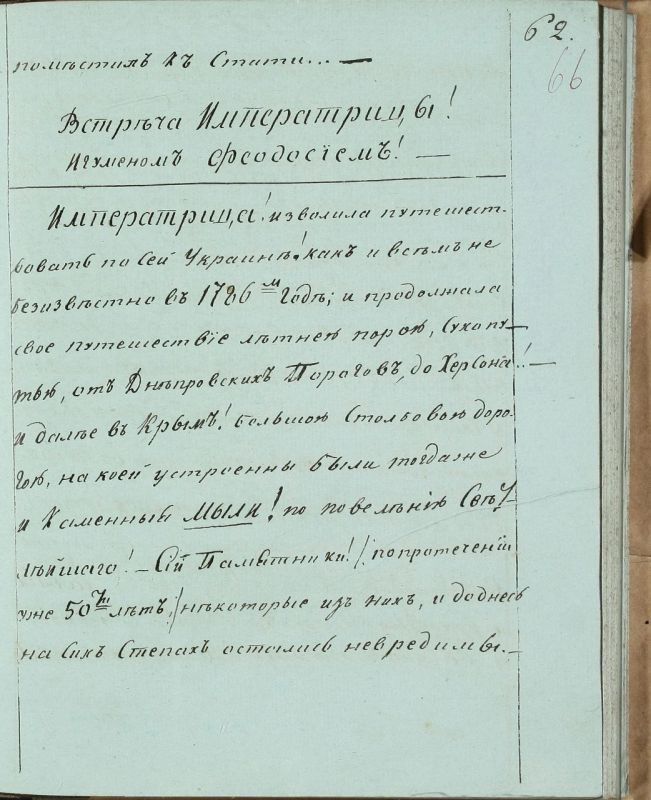 62.
66
помѣстилъ къ Стати... —
Встрѣча Императрицы!
Игуменомъ Ѳеодосіемъ! —
Императрица! изволила путешест-
вовать по сей Украинѣ! какъ и всѣмъ не
безизвѣстно въ 1786 м годѣ; и продолжала
свое путешествіе лѣтнею порою, Сухопу-
тью, отъ Днѣпровскихъ Пороговъ, до Херсона! —
и далѣе въ Крымъ! большою Столбовою доро-
гою, на коей устроенны были тогда же
и Каменный мыли! по повелѣнію Свѣт-
лѣйшаго! — Сіи Памятники! /: по протеченіи
уже 50 ти лѣтъ :/ нѣкоторые изъ нихъ, и доднесь
на Сихъ Степахъ остались невредимы. —